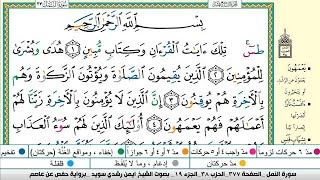 بِسْمِ ٱللَّهِ ٱلرَّحْمَٰنِ ٱلرَّحِيمِ
طسٓ تِلْكَ ءَايَٰتُ ٱلْقُرْءَانِ وَكِتَابٍ مُّبِينٍ ١ هُدًى وَبُشْرَىٰ
لِلْمُؤْمِنِينَ ٢ ٱلَّذِينَ يُقِيمُونَ ٱلصَّلَوٰةَ وَيُؤْتُونَ ٱلزَّكَوٰةَ وَهُم
بِٱلْءَاخِرَةِ هُمْ يُوقِنُونَ ٣ إِنَّ ٱلَّذِينَ لَا يُؤْمِنُونَ بِٱلْءَاخِرَةِ زَيَّنَّا لَهُمْ
أَعْمَٰلَهُمْ فَهُمْ يَعْمَهُونَ ٤ أُو۟لَٰٓئِكَ ٱلَّذِينَ لَهُمْ سُوٓءُ ٱلْعَذَابِ
يَعْمَهُونَ
مد ٦ حركات لزوماً
مد ٢ أو ٤ أو ٦ جوازاً
إخفاء، ومواقع الغنة (حركتان)
تفخيم
إدغام، وما لا يلفظ
قلقلة
سورة النمل، الصفحة ٣٧٧، الحزب ٣٨، الجزء ١٩، بصوت الشيخ أيمن رشدي سويد برواية حفص عن عاصم